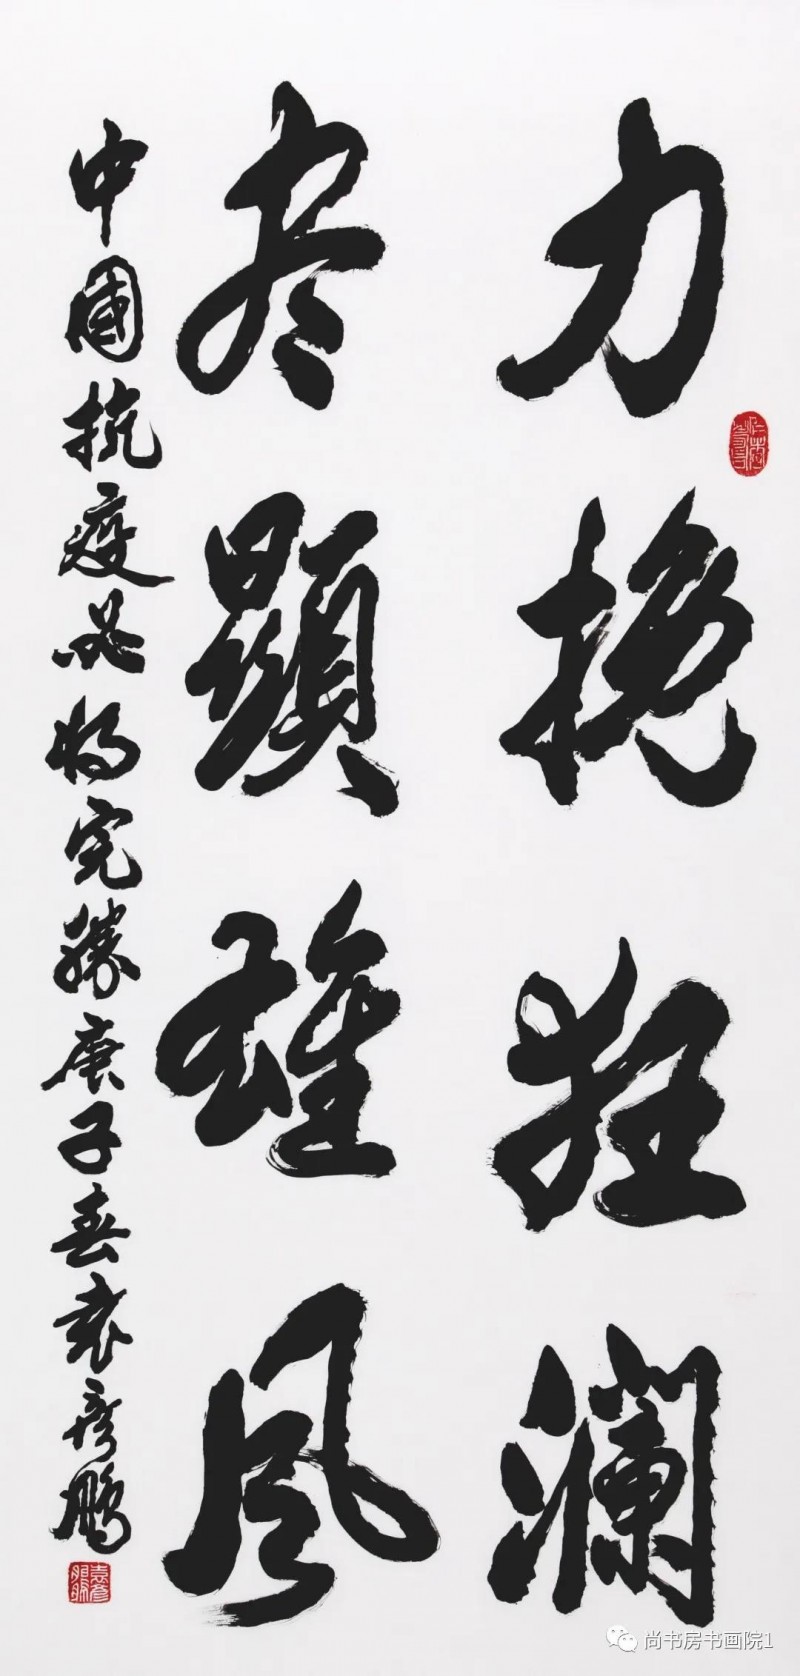 力挽狂瀾
尽顯雄風
中國抗疫必將完勝庚子春袁彦鵬
尚书房书画院1